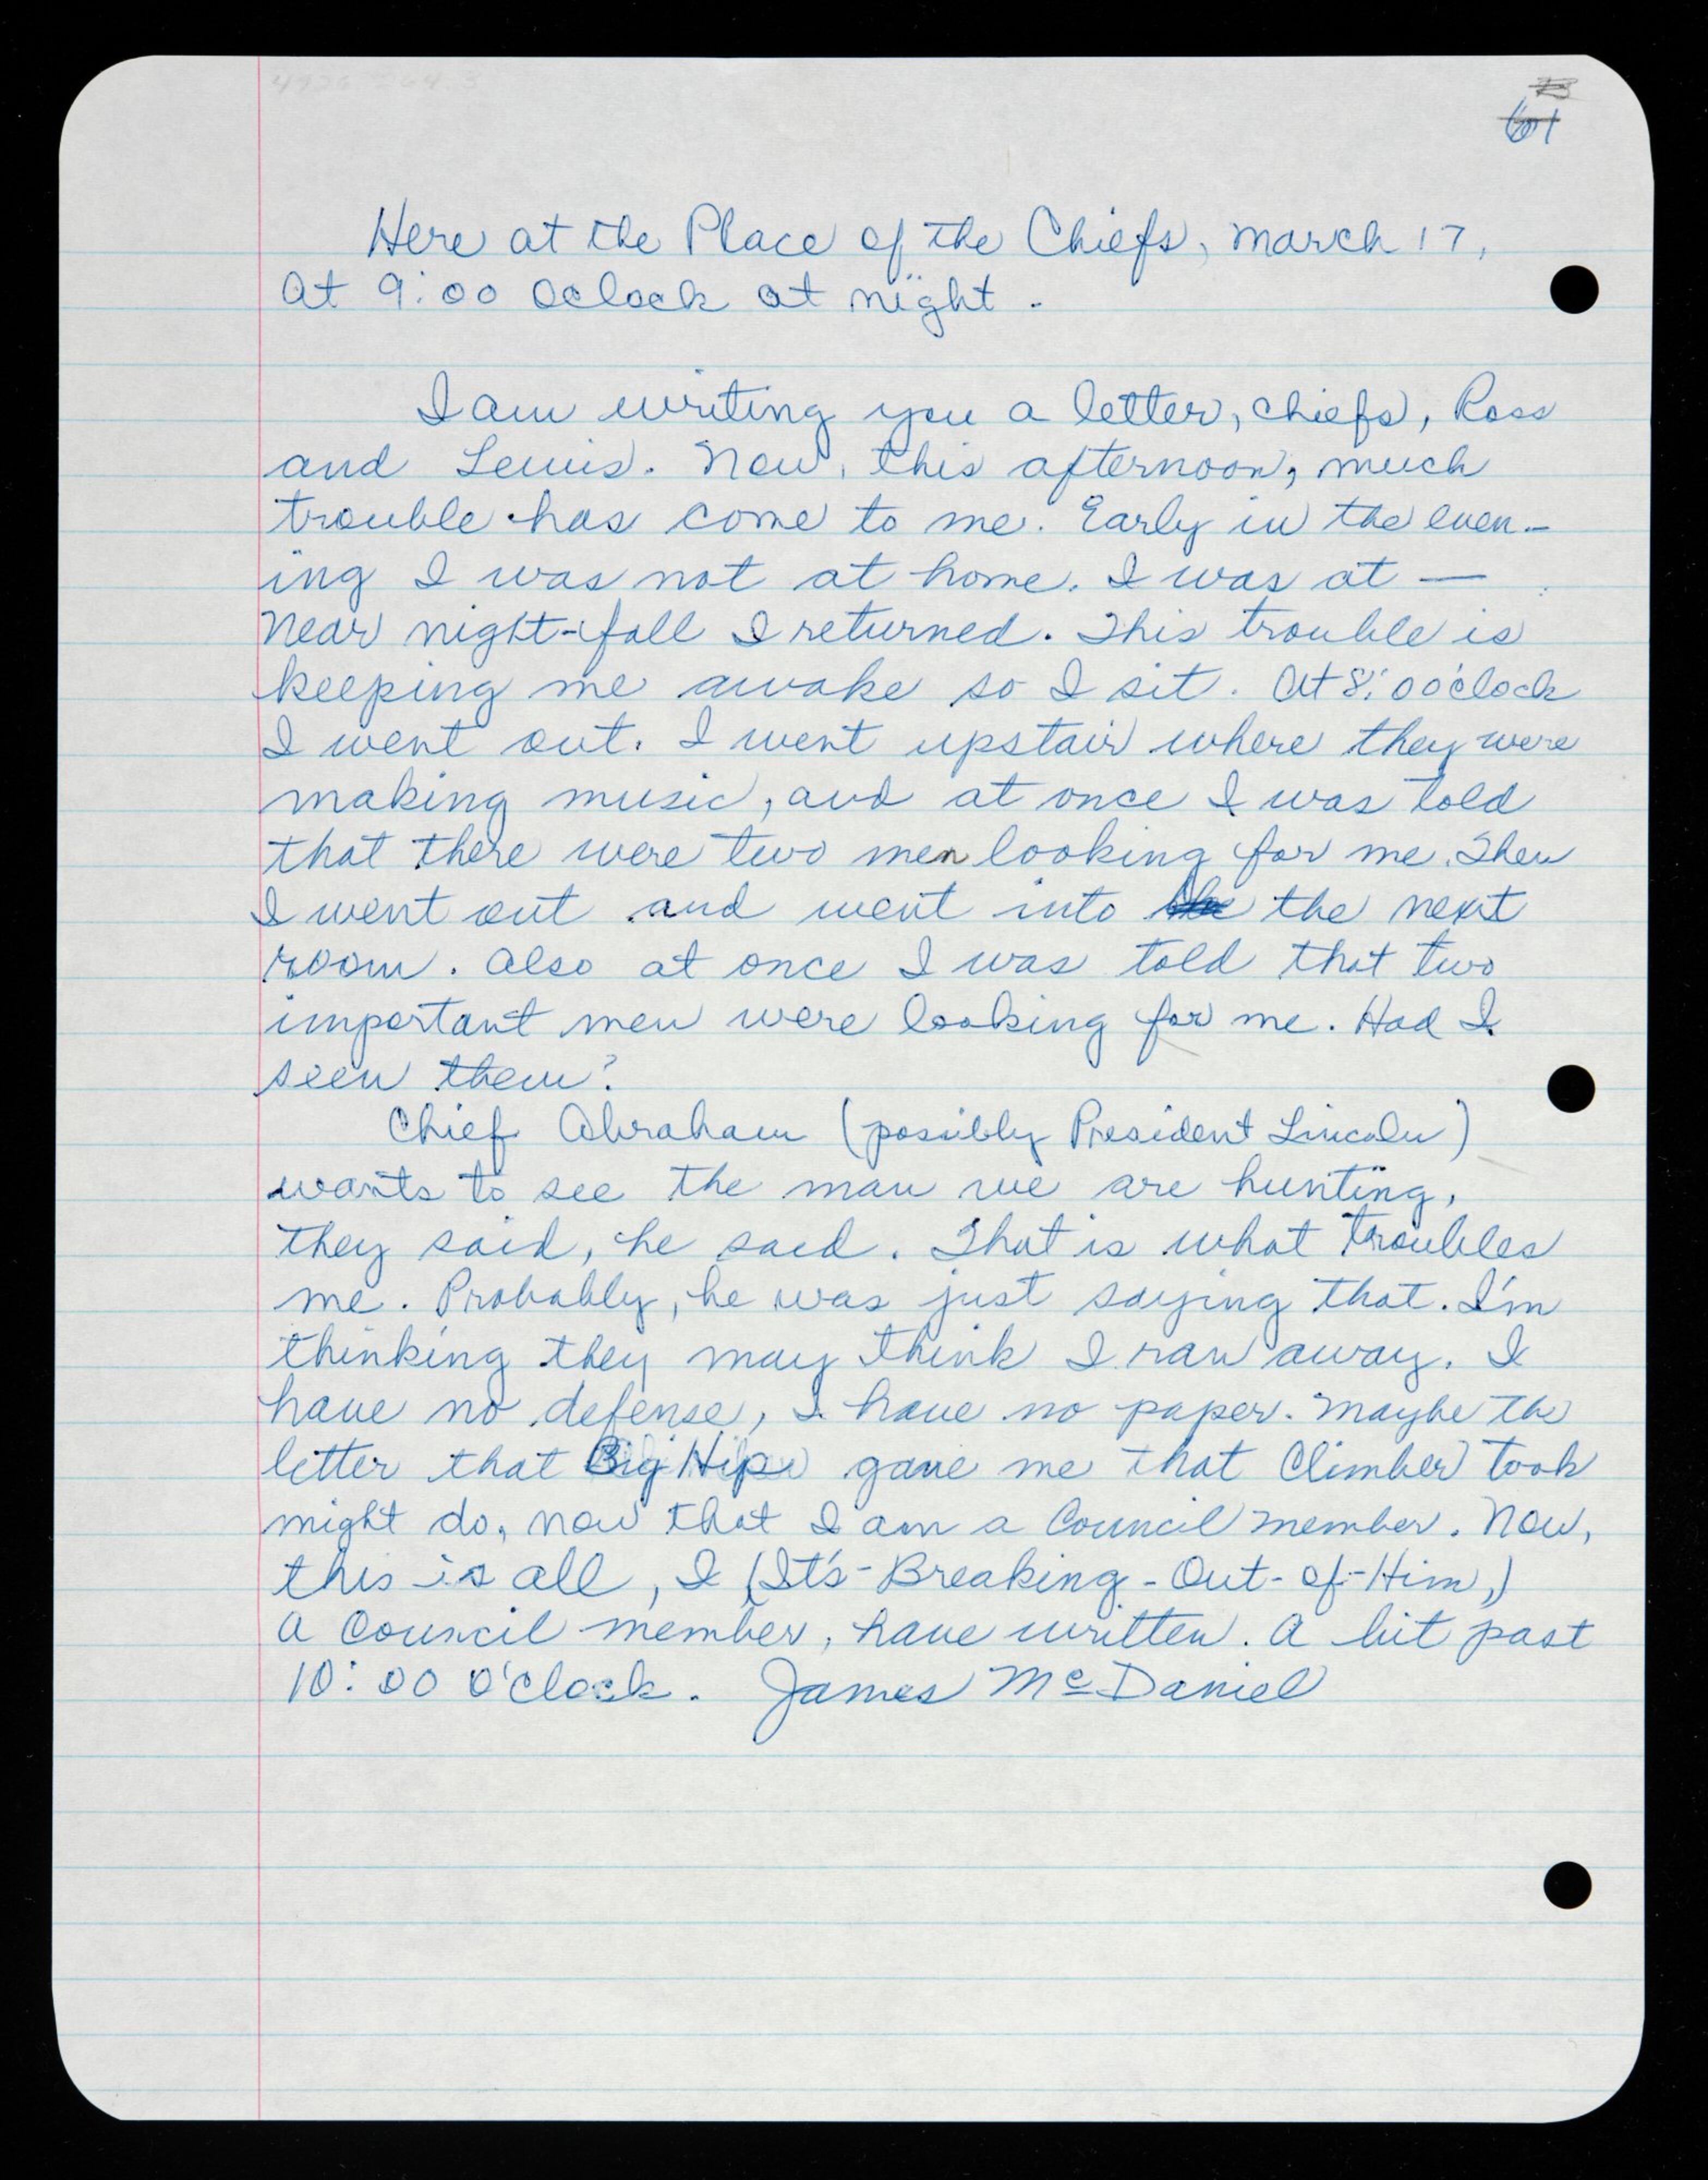 61
Here at the Place of the Chiefs, March 17,
At 9:00 Oclock at night.
I am writing you a letter, chiefs, Ross
and Lewis. Now, this afternoon, much
trouble has come to me. Early in the even-
ing I was not at home. I was at —
Near night-fall I returned. This trouble is
keeping me awake so I sit. At 8:00 o'clock
I went out. I went upstair where they were
making music, and at once I was told
that there were two men looking for me. Then
I went out and went into the the next
room. Also at once I was told that two
important men were looking for me. Had I
seen them?
Chief Abraham (possibly President Lincoln)
wants to see the man we are hunting,
they said, he said. That is what troubles
me. Probably, he was just saying that. I'm
thinking they may think I ran away. I
have no defense, I have no paper. Maybe the
letter that Big Hips gave me that Climber took
might do, now that I am a Council member. Now,
this is all, I (It's-Breaking-Out-of-Him,)
A Council member, have written. A bit past
10:00 O'Clock. James McDaniel